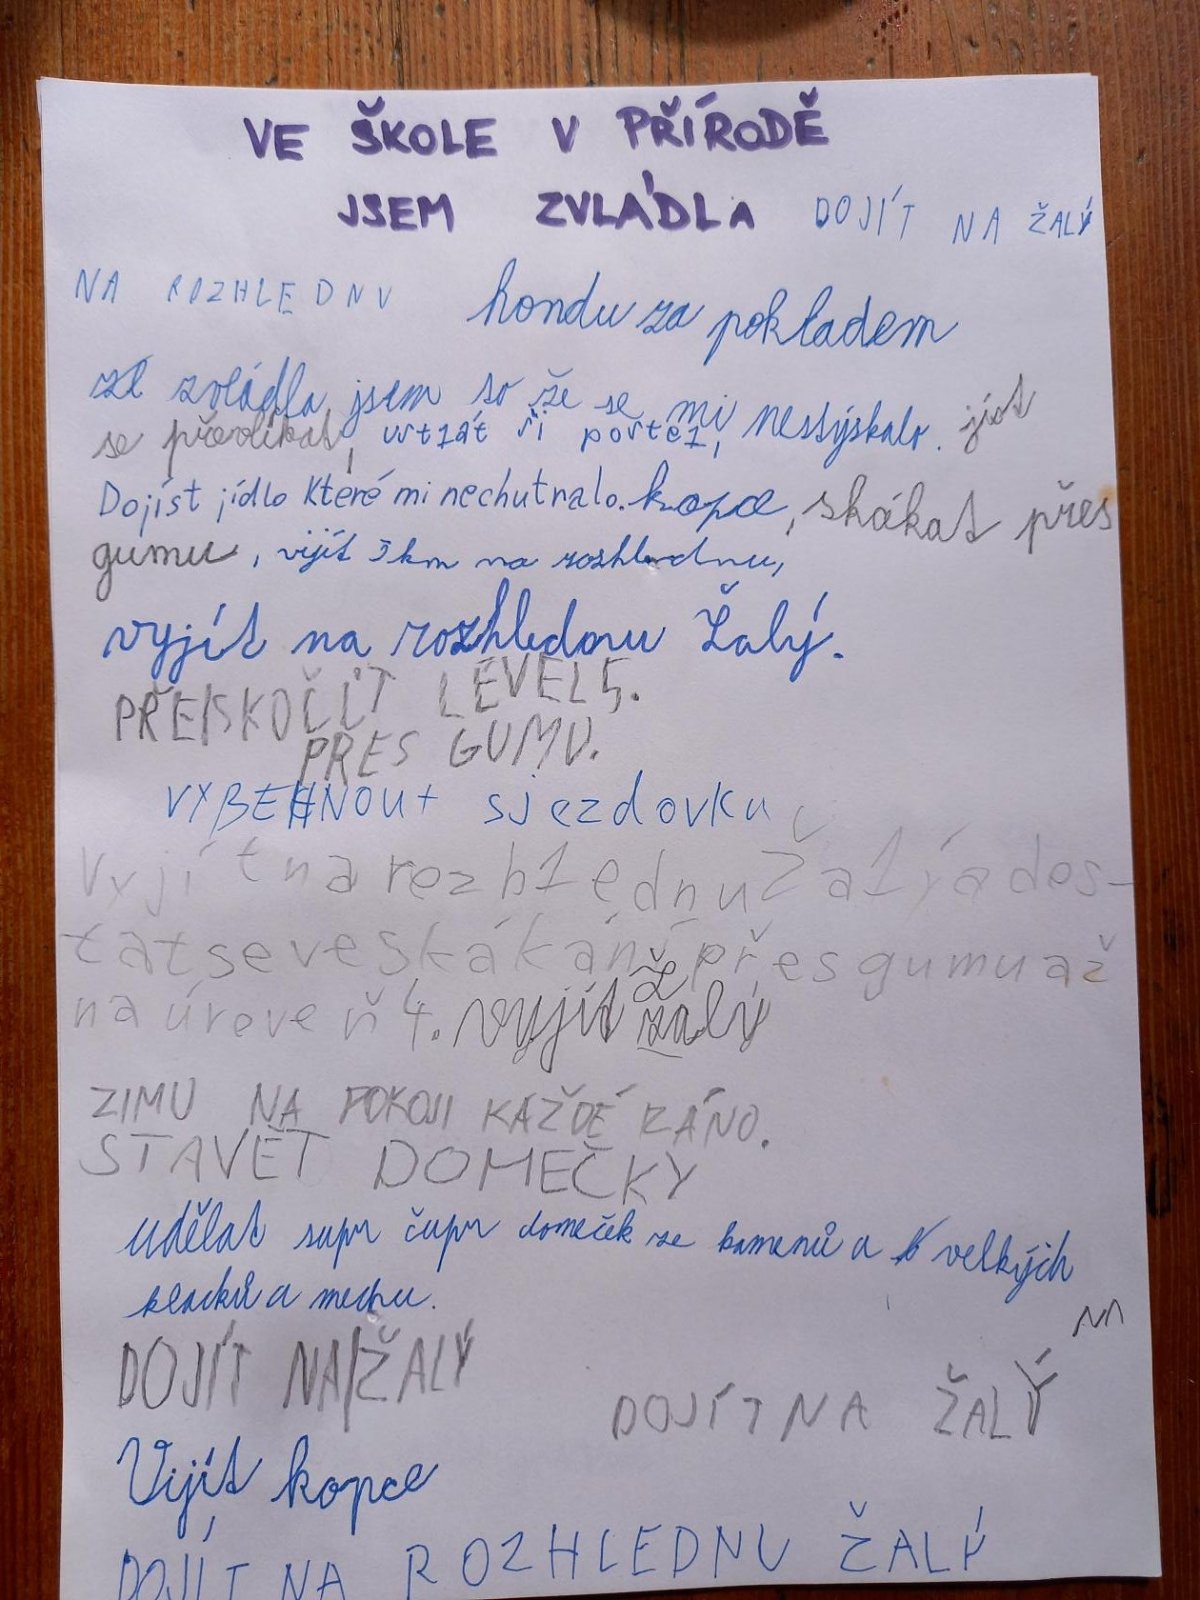 VE ŠKOLE V PŘÍRODĚ
JSEM ZVLÁDLA DOJÍT NA ŽALÝ
NA ROZHLEDNU hondu za pokladem
zvládla jsem to že se mi nestýskalo. jíst
se převlíkat, ustlat si postel,
Dojíst jídlo které mi nechutnalo. kopce, skákat přes
gumu, vijít 3km na rozhlednu,
vyjít na rozhlednu Žalý.
PŘEISKOČIT LEVEL 5.
PŘES GUMU.
VYBEHNOUt sjezdovku
Vyjít na rozhlednu Žalý a dos-
tat se ve skákání přes gumu až
na úroveň 4. vyjít Žalý
ZIMU NA POKOJI KAŽDÉ RÁNO.
STAVĚT DOMEČKY
udělat supr čupr domeček ze kamenů a velkých
klacků a mechu.
DOJÍT NA ŽALÝ
DOJÍT NA ŽALÝ
Vijít kopce
DOJÍT NA ROZHLEDNU ŽALÝ